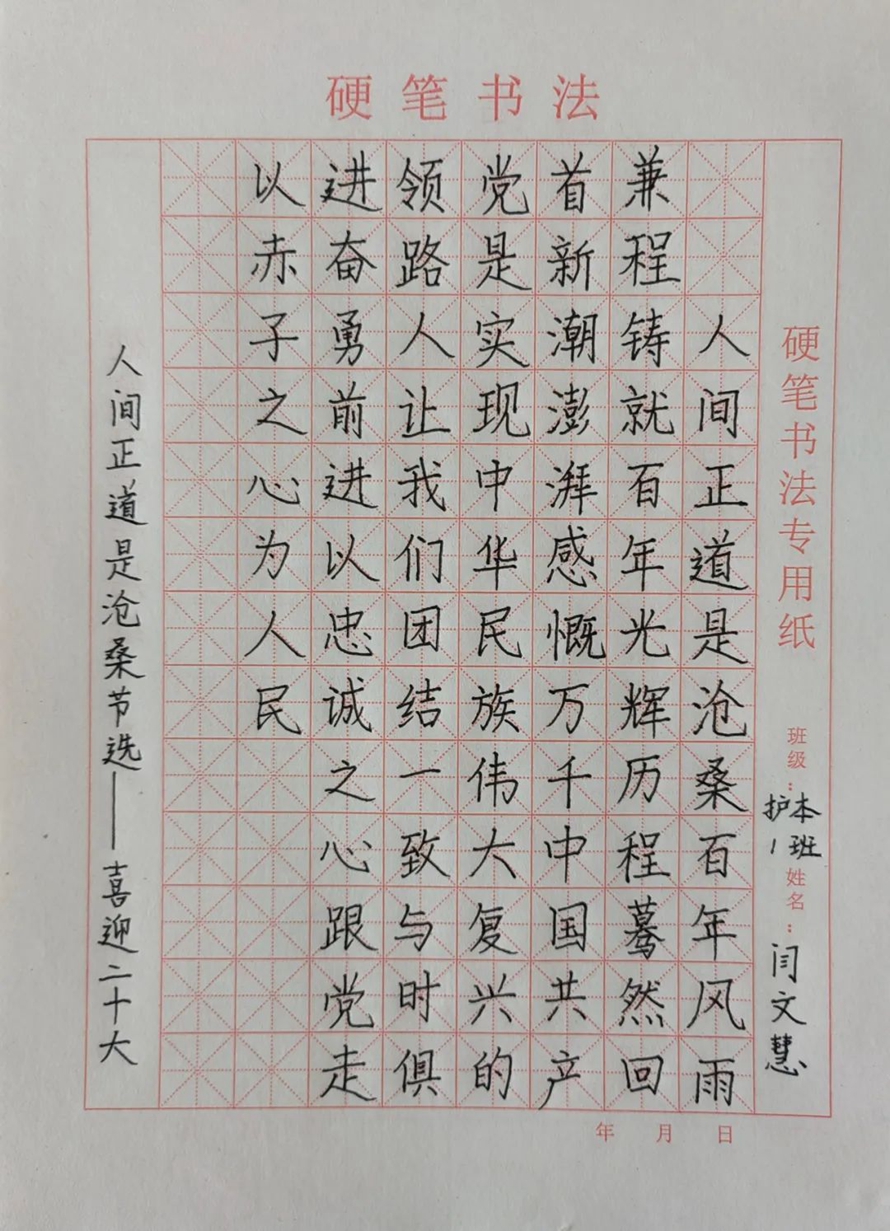 硬笔书法
硬笔书法专用纸
班级：护本1班
姓名：闫文慧
人间正道是沧桑百年风雨
兼程铸就百年光辉历程蓦然回
首新潮澎湃感慨万千中国共产
党是实现中华民族伟大复兴的
领路人让我们团结一致与时俱
进奋勇前进以忠诚之心跟党走
以赤子之心为人民
人间正道是沧桑节选——喜迎二十大
年 月 日